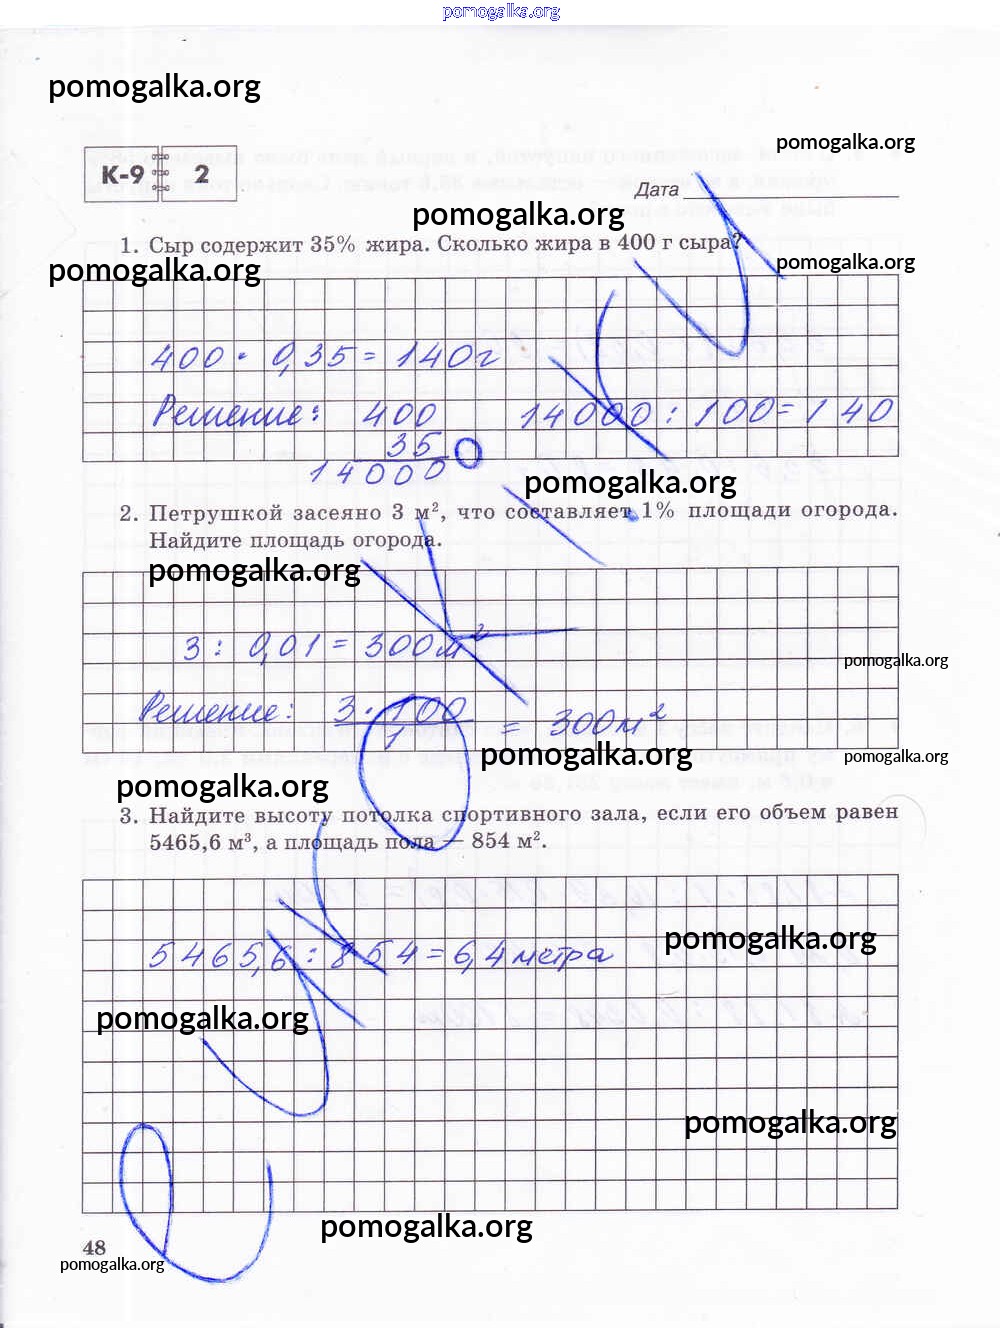 pomogalka.org
pomogalka.org
pomogalka.org
К-9 2
Дата
pomogalka.org
1. Сыр содержит 35% жира. Сколько жира в 400 г сыра?
pomogalka.org
pomogalka.org
400 · 0,35 = 140 г
Решение: 400 14000 : 100 = 140
35
14000
pomogalka.org
2. Петрушкой засеяно 3 м², что составляет 1% площади огорода.
Найдите площадь огорода.
pomogalka.org
3 : 0,01 = 300 м²
pomogalka.org
Решение: 3 · 100 / 1 = 300 м²
pomogalka.org
pomogalka.org
pomogalka.org
3. Найдите высоту потолка спортивного зала, если его объем равен
5465,6 м³, а площадь пола — 854 м².
pomogalka.org
5465,6 : 854 = 6,4 метра
pomogalka.org
pomogalka.org
pomogalka.org
48
pomogalka.org